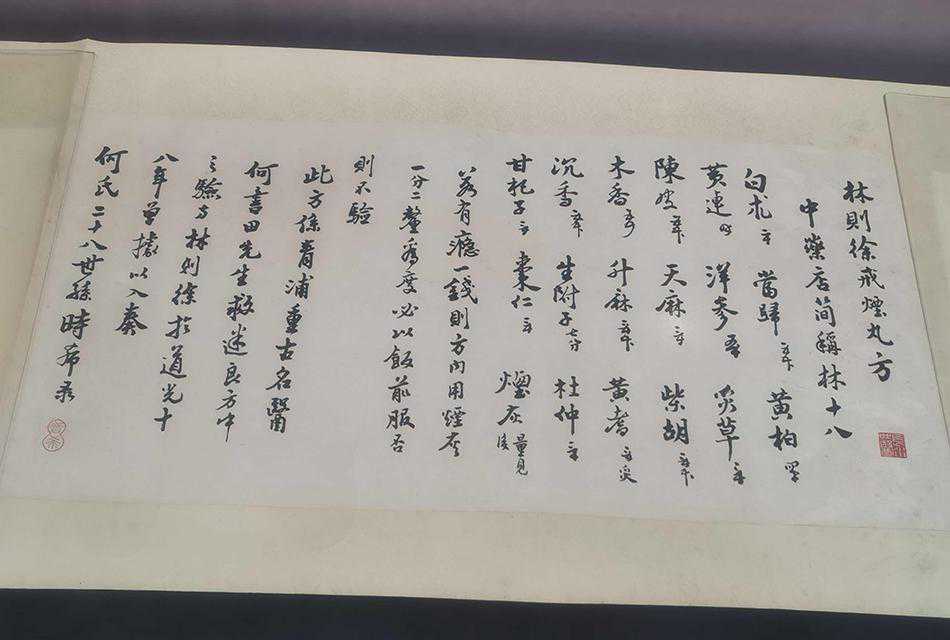 林則徐戒煙丸方
中藥店簡稱林十八
白朮 當歸 黃柏
黃連 洋參 炙草
陳皮 天麻 柴胡
木香 升麻 黃耆 炙
沉香 生附子 七分 杜仲
甘杞子 棗仁 煙灰 量見後
若有癮一錢則方內用煙灰
一分二釐為度必以飯前服否
則不驗
此方係青浦重古名醫
何書田先生救迷良方中
之驗方林則徐於道光十
八年曾據以入奏
何氏二十八世孫時希录